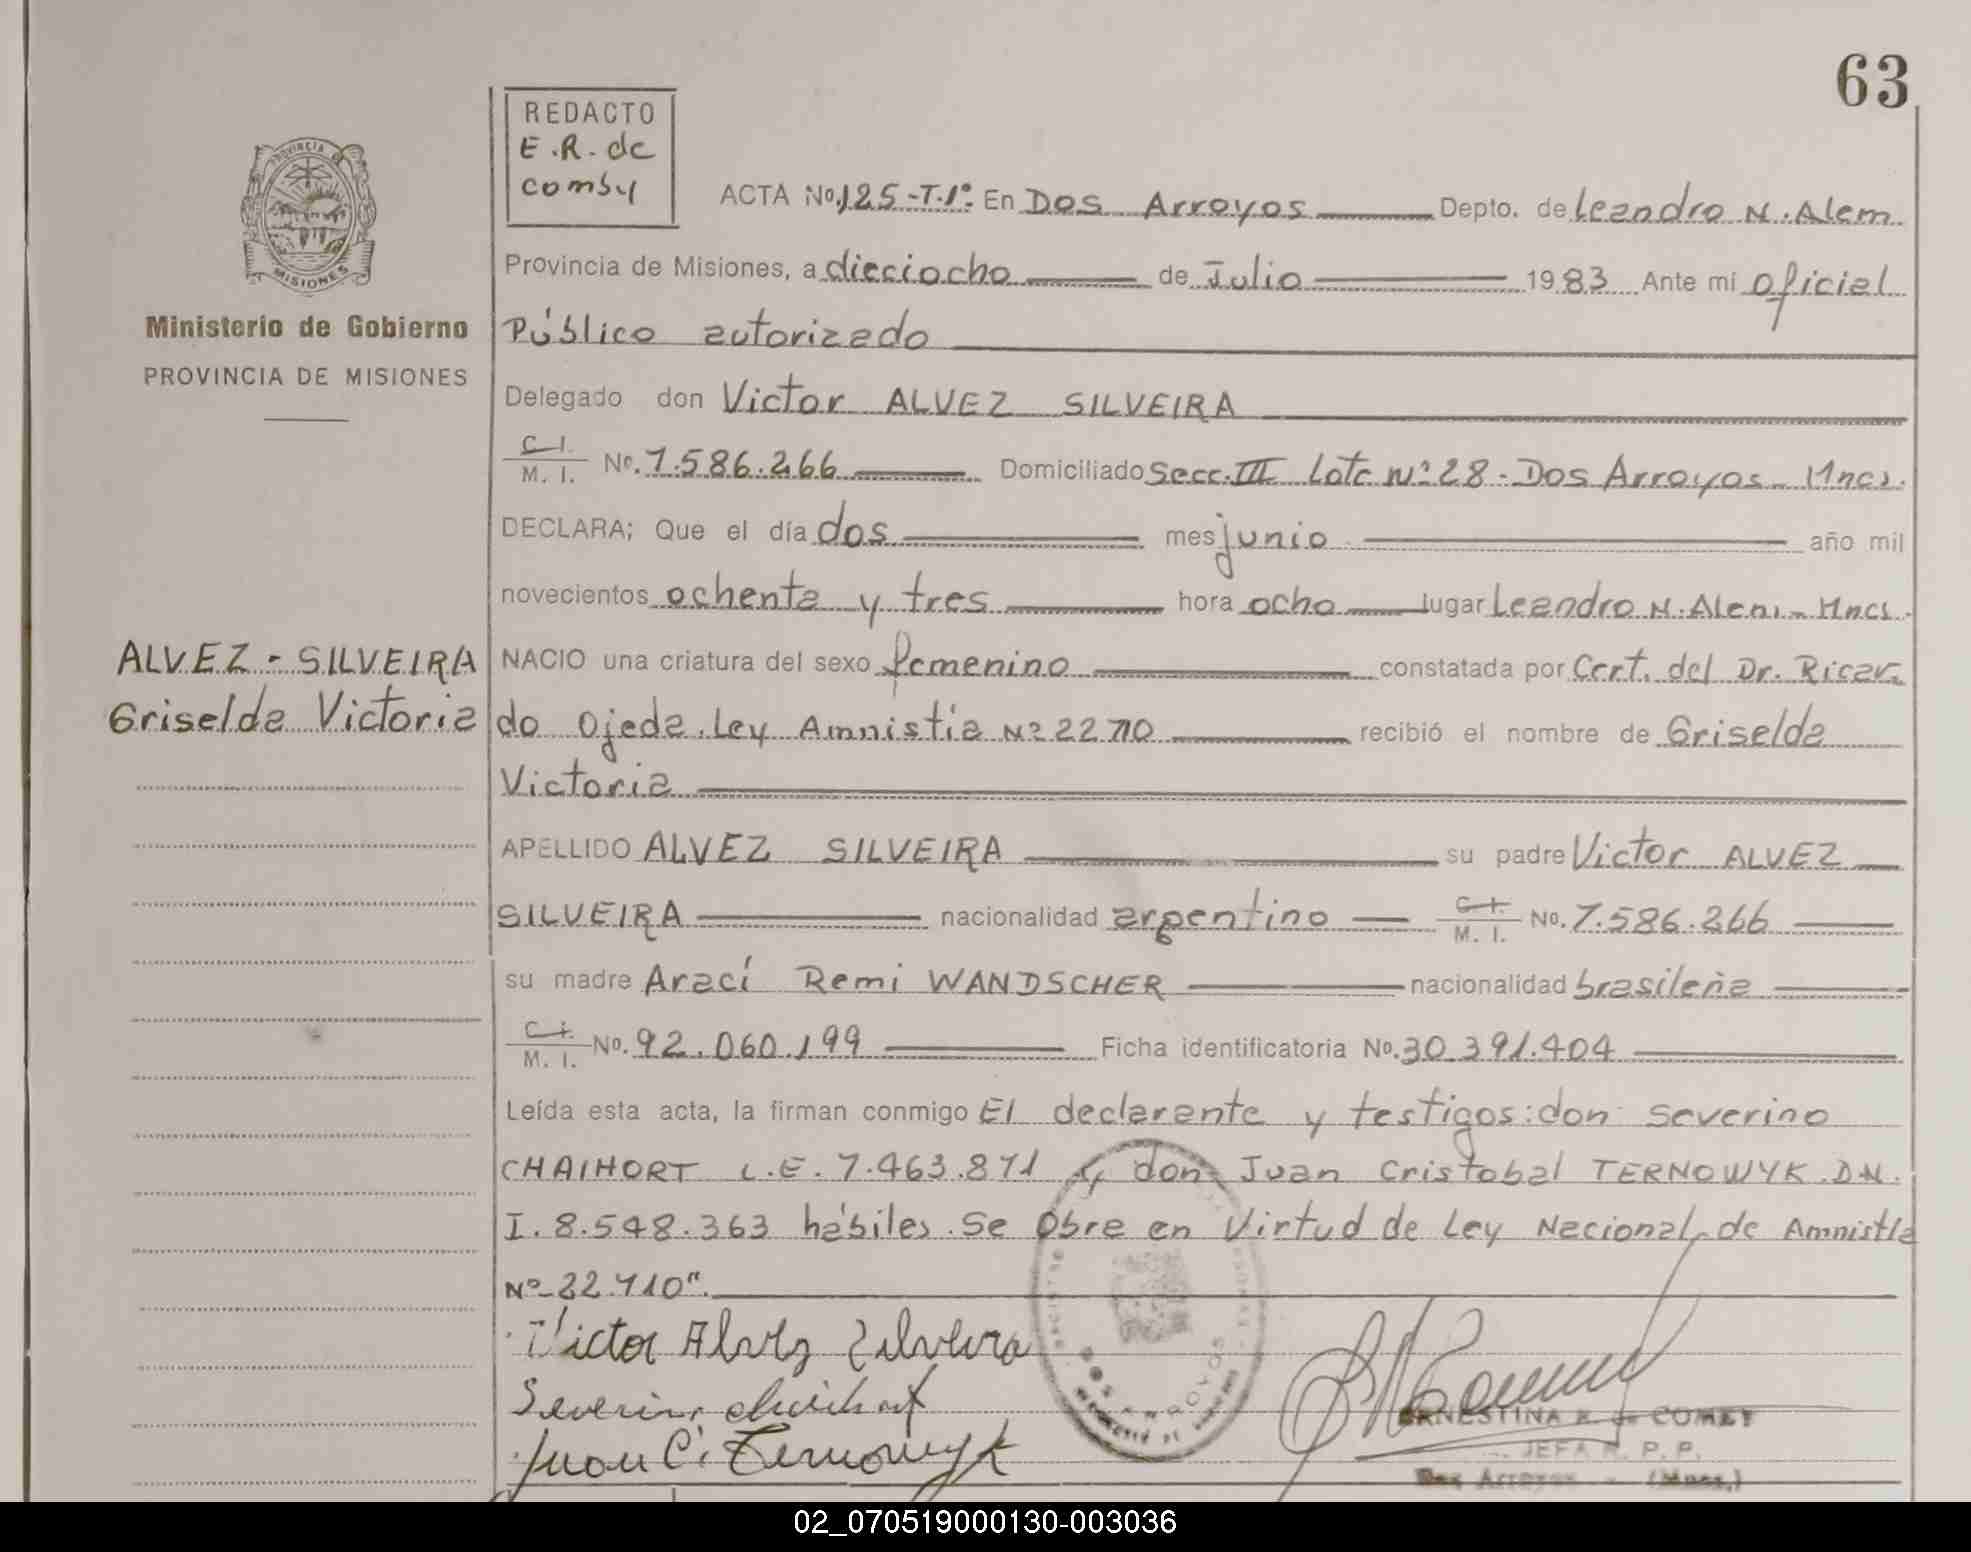 63
REDACTO
E.R. de
comby
PROVINCIA DE
MISIONES
Ministerio de Gobierno
PROVINCIA DE MISIONES
ACTA No. 125-T.1º. En Dos Arroyos Depto. de Leandro N. Alem
Provincia de Misiones, a dieciocho de Julio 1983 Ante mi oficial
Público autorizado
Delegado don Victor ALVEZ SILVEIRA
C.I. / M.I. No. 7.586.266 Domiciliado Secc. III Lote Nº 28 - Dos Arroyos - Mnes.
DECLARA; Que el día dos mes junio año mil
novecientos ochenta y tres hora ocho lugar Leandro N. Alem - Mnes.
ALVEZ - SILVEIRA
Griselda Victoria
NACIO una criatura del sexo femenino constatada por Cert. del Dr. Ricar-
do Ojeda. Ley Amnistia Nº 22710 recibió el nombre de Griselda
Victoria
APELLIDO ALVEZ SILVEIRA su padre Victor ALVEZ
SILVEIRA nacionalidad argentino C.I. / M.I. No. 7.586.266
su madre Aracì Remi WANDSCHER nacionalidad brasileña
C.I. / M.I. No. 92.060.199 Ficha identificatoria No. 30.391.404
Leída esta acta, la firman conmigo El declarante y testigos: don Severino
CHAIHORT L.E. 7.463.871 y don Juan Cristobal TERNOWYK. D.N.
I. 8.548.363 hábiles. Se Obre en Virtud de Ley Nacional de Amnistia
Nº 22.710".
Victor Alvez Silveira
Severino Chaihort
Juan C. Ternowyk
DOS ARROYOS
ERNESTINA R. de COMBY
JEFA R. P. P.
Dos Arroyos - (Mnes.)
02_070519000130-003036